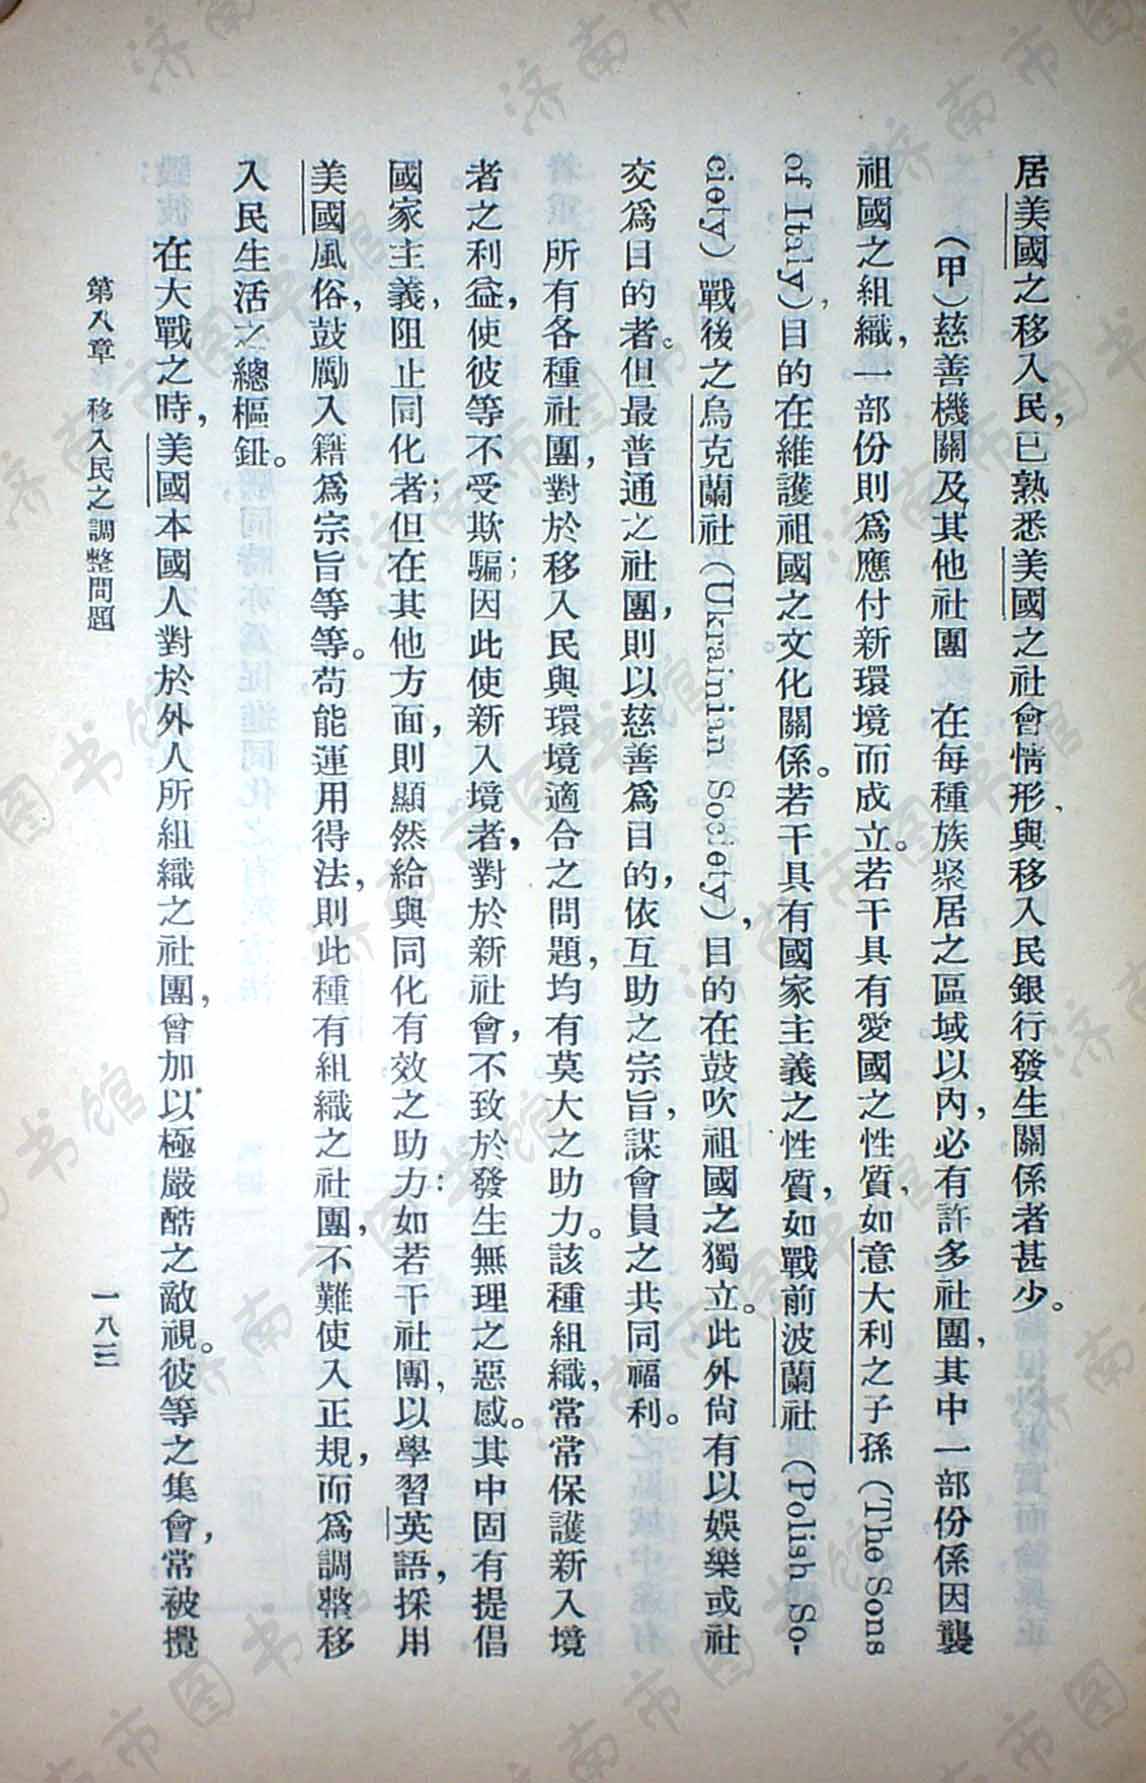 居美國之移入民，已熟悉美國之社會情形與移入民銀行發生關係者甚少。
（甲）慈善機關及其他社團　在每種族聚居之區域以內，必有許多社團，其中一部份係因襲
祖國之組織，一部份則爲應付新環境而成立。若干具有愛國之性質，如意大利之子孫（The Sons
of Italy），目的在維護祖國之文化關係。若干具有國家主義之性質，如戰前波蘭社（Polish So-
ciety）戰後之烏克蘭社（Ukrainian Society），目的在鼓吹祖國之獨立。此外尙有以娛樂或社
交爲目的者。但最普通之社團，則以慈善爲目的，依互助之宗旨，謀會員之共同福利。
所有各種社團，對於移入民與環境適合之問題，均有莫大之助力。該種組織，常常保護新入境
者之利益，使彼等不受欺騙；因此使新入境者，對於新社會，不致於發生無理之惡感。其中固有提倡
國家主義，阻止同化者；但在其他方面，則顯然給與同化有效之助力：如若干社團，以學習英語，採用
美國風俗，鼓勵入籍爲宗旨等等。苟能運用得法，則此種有組織之社團，不難使入正規，而爲調整移
入民生活之總樞鈕。
在大戰之時，美國本國人對於外人所組織之社團，曾加以極嚴酷之敵視。彼等之集會，常被攪
第八章　移入民之調整問題
一八三
济南市图书馆